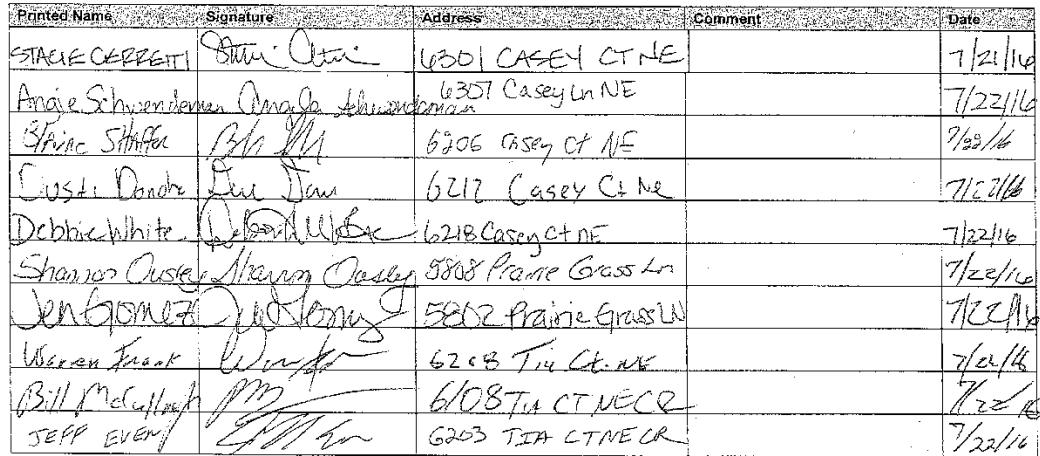 Printed Name Signature Address Comment Date
STACIE CERRETTI 6301 CASEY CT NE 7/21/16
Angie Schwendeman Angela Schwendeman 6307 Casey Ln NE 7/22/16
Blaine SHAffer 6206 Casey Ct NE 7/22/16
Dusti 6212 Casey Ct Ne 7/22/16
Debbie White 6218 Casey Ct NE 7/22/16
Shannon Ousley Shannon Ousley 5808 Prairie Grass Ln 7/22/16
Jen Gomez 5802 Prairie Grass LN 7/22/16
Warren Frank Tia Ct. NE 7/22/16
Bill McCullough 6108 TIA CT NE CR 7/22/16
JEFF EVEN 6203 TIA CT NE CR 7/22/16